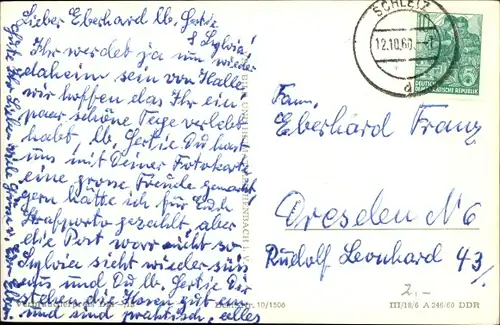 Lieber Eberhard lb. Gertie
& Sylvia!
Ihr werdet ja nun wieder
daheim sein von Halle
wir hoffen das Ihr ein
paar schöne Tage verlebt
habt, lb. Gertie Du hast
uns mit Deiner Fotokarte
eine grose Freude gemacht
gern hätte ich für Euch
Strafporto gezahlt, aber
die Post war nicht so
Sylvia sieht wieder süss
aus und Du lb. Gertie Dir
stehen die Hosen gut
und sind praktisch, alles
SCHLEIZ
12.10.60
d
DEUTSCHE
DEMOKRATISCHE REPUBLIK
Fam.
Eberhard Franz
Dresden N 6
Rudolf Leonhard 43
2,-
10/1506
III/18/6 A 246/60 DDR